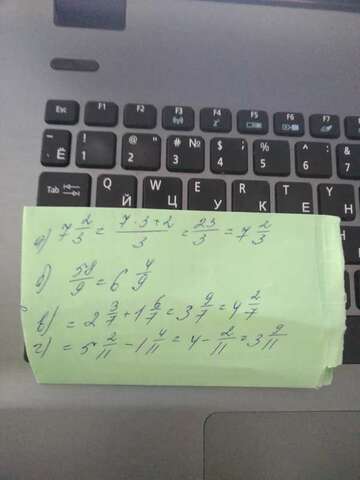 Esc F1 F2 F3 F4 F5 F6 F7
~ Ё ! 1 @ " 2 # № 3 $ ; 4 % 5 ^ : 6 & ? 7
Tab Q Й W Ц E У R К T Е Y Н
а) 7 2/3 = (7·3+2)/3 = 23/3 = 7 2/3
б) 58/9 = 6 4/9
в) = 2 3/7 + 1 6/7 = 3 9/7 = 4 2/7
г) = 5 2/11 - 1 4/11 = 4 - 2/11 = 3 9/11